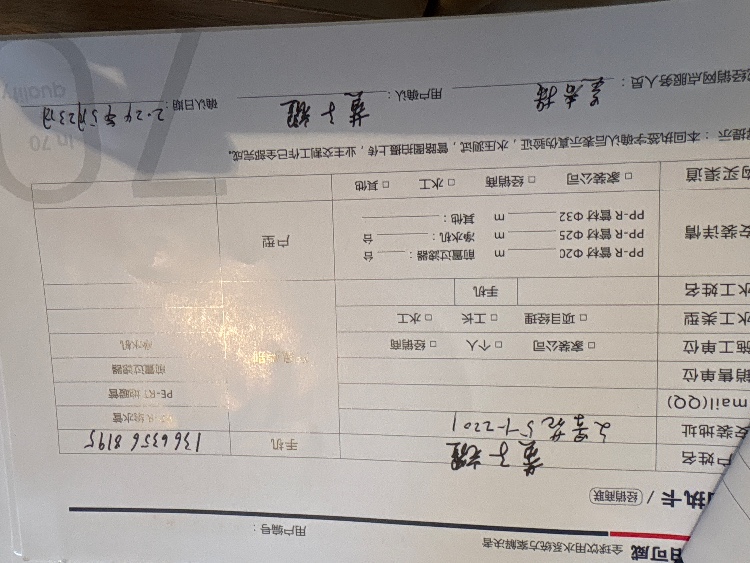 日可威 全球饮用水系统方案解决者
用户编号：
回执卡 / (经销商联)
户姓名 黄子耀
手机 13663568195
安装地址 文景苑5-1-2201
mail(QQ)
销售单位
施工单位 □ 家装公司 □ 个人 □ 经销商
水工类型 □ 项目经理 □ 工长 □ 水工
水工姓名 手机
PP-R给水管
PE-RT地暖管
前置过滤器
净水机
安装详情
PP-R 管材 Φ20 ____ m 前置过滤器：____ 台
PP-R 管材 Φ25 ____ m 净水机：____ 台
PP-R 管材 Φ32 ____ m 其他：____
户型
购买渠道 □ 家装公司 □ 经销商 □ 水工 □ 其他
提示：本回执签字确认后表示真伪验证，水压测试，管路图拍摄上传，业主交割工作已全部完成。
经销网点服务人员： 用户确认：黄子耀 确认日期：2024年5月23日
70
in 70
quality